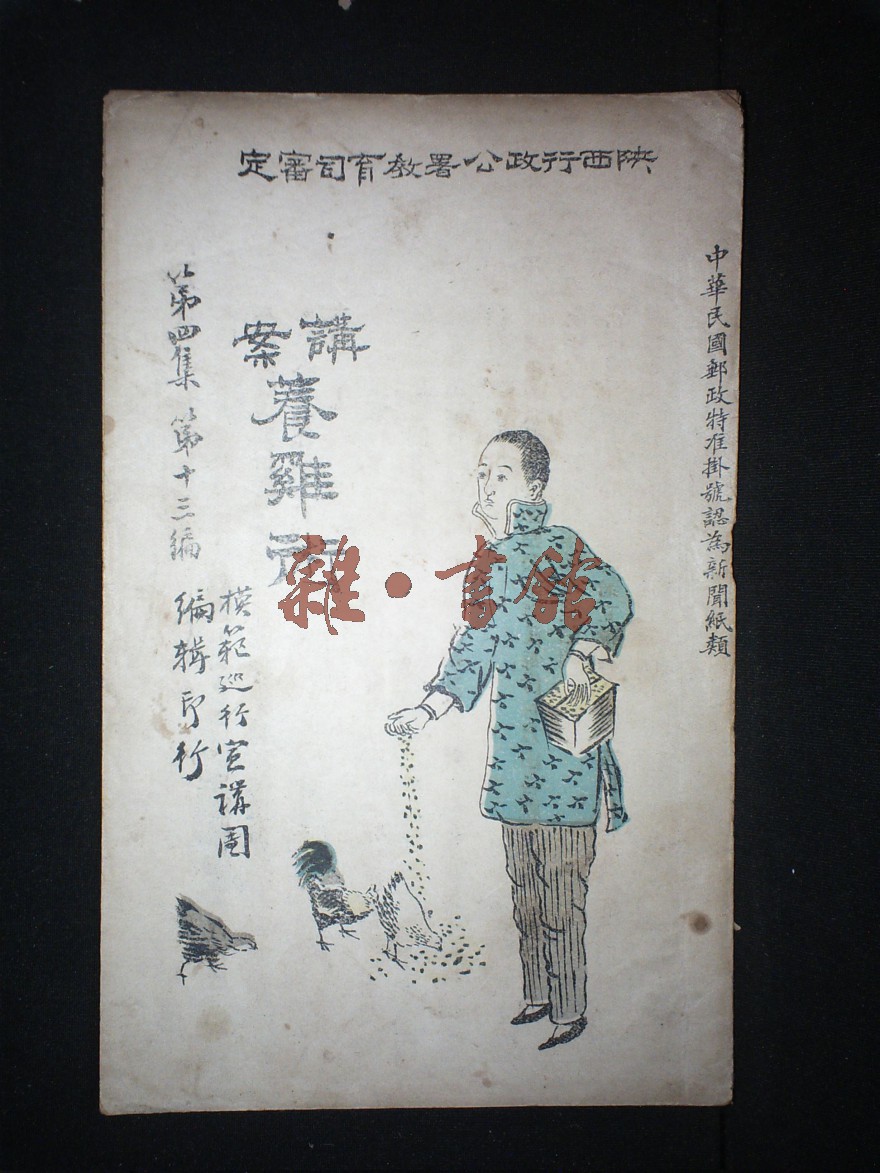 陝西行政公署教育司審定
中華民國郵政特准掛號認為新聞紙類
講案
養雞
第四集 第十三編
模範巡行宣講團
編輯印行
雜·書館